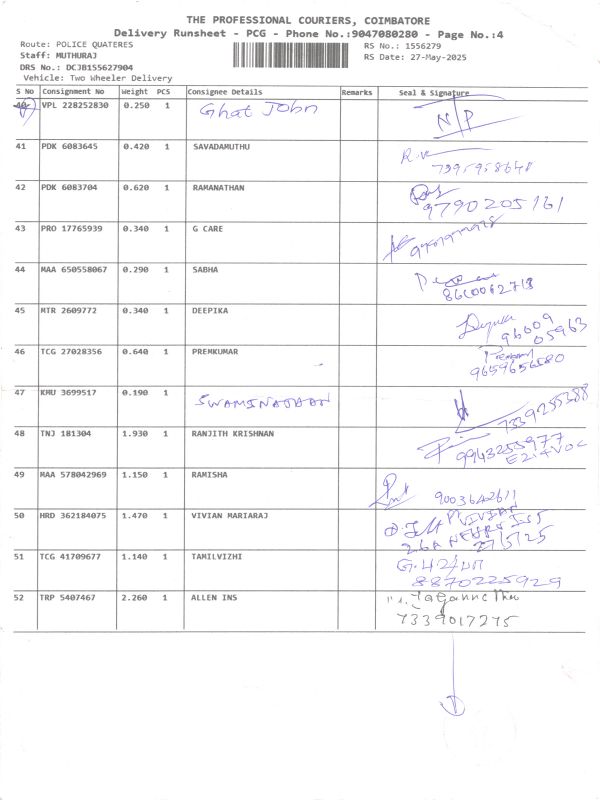 THE PROFESSIONAL COURIERS, COIMBATORE
Delivery Runsheet - PCG - Phone No.:9047080280 - Page No.:4
Route: POLICE QUATERES
RS No.: 1556279
Staff: MUTHURAJ
RS Date: 27-May-2025
DRS No.: DCJB155627904
Vehicle: Two Wheeler Delivery
S No Consignment No Weight PCS Consignee Details Remarks Seal & Signature
40 VPL 228252830 0.250 1 Ghat John N/P
41 PDK 6083645 0.420 1 SAVADAMUTHU
7395958648
42 PDK 6083704 0.620 1 RAMANATHAN
9790205161
43 PRO 17765939 0.340 1 G CARE
44 MAA 650558067 0.290 1 SABHA
8610062718
45 MTR 2609772 0.340 1 DEEPIKA
96009
05963
46 TCG 27028356 0.640 1 PREMKUMAR
9659656580
47 KMU 3699517 0.190 1 SWAMINATHAN
7339255388
48 TNJ 181304 1.930 1 RANJITH KRISHNAN
9943255977
49 MAA 578042969 1.150 1 RAMISHA
9003642611
50 HRD 362184075 1.470 1 VIVIAN MARIARAJ
VIVIAN
27/5/25
51 TCG 41709677 1.140 1 TAMILVIZHI
8870225929
52 TRP 5407467 2.260 1 ALLEN INS
7339017275